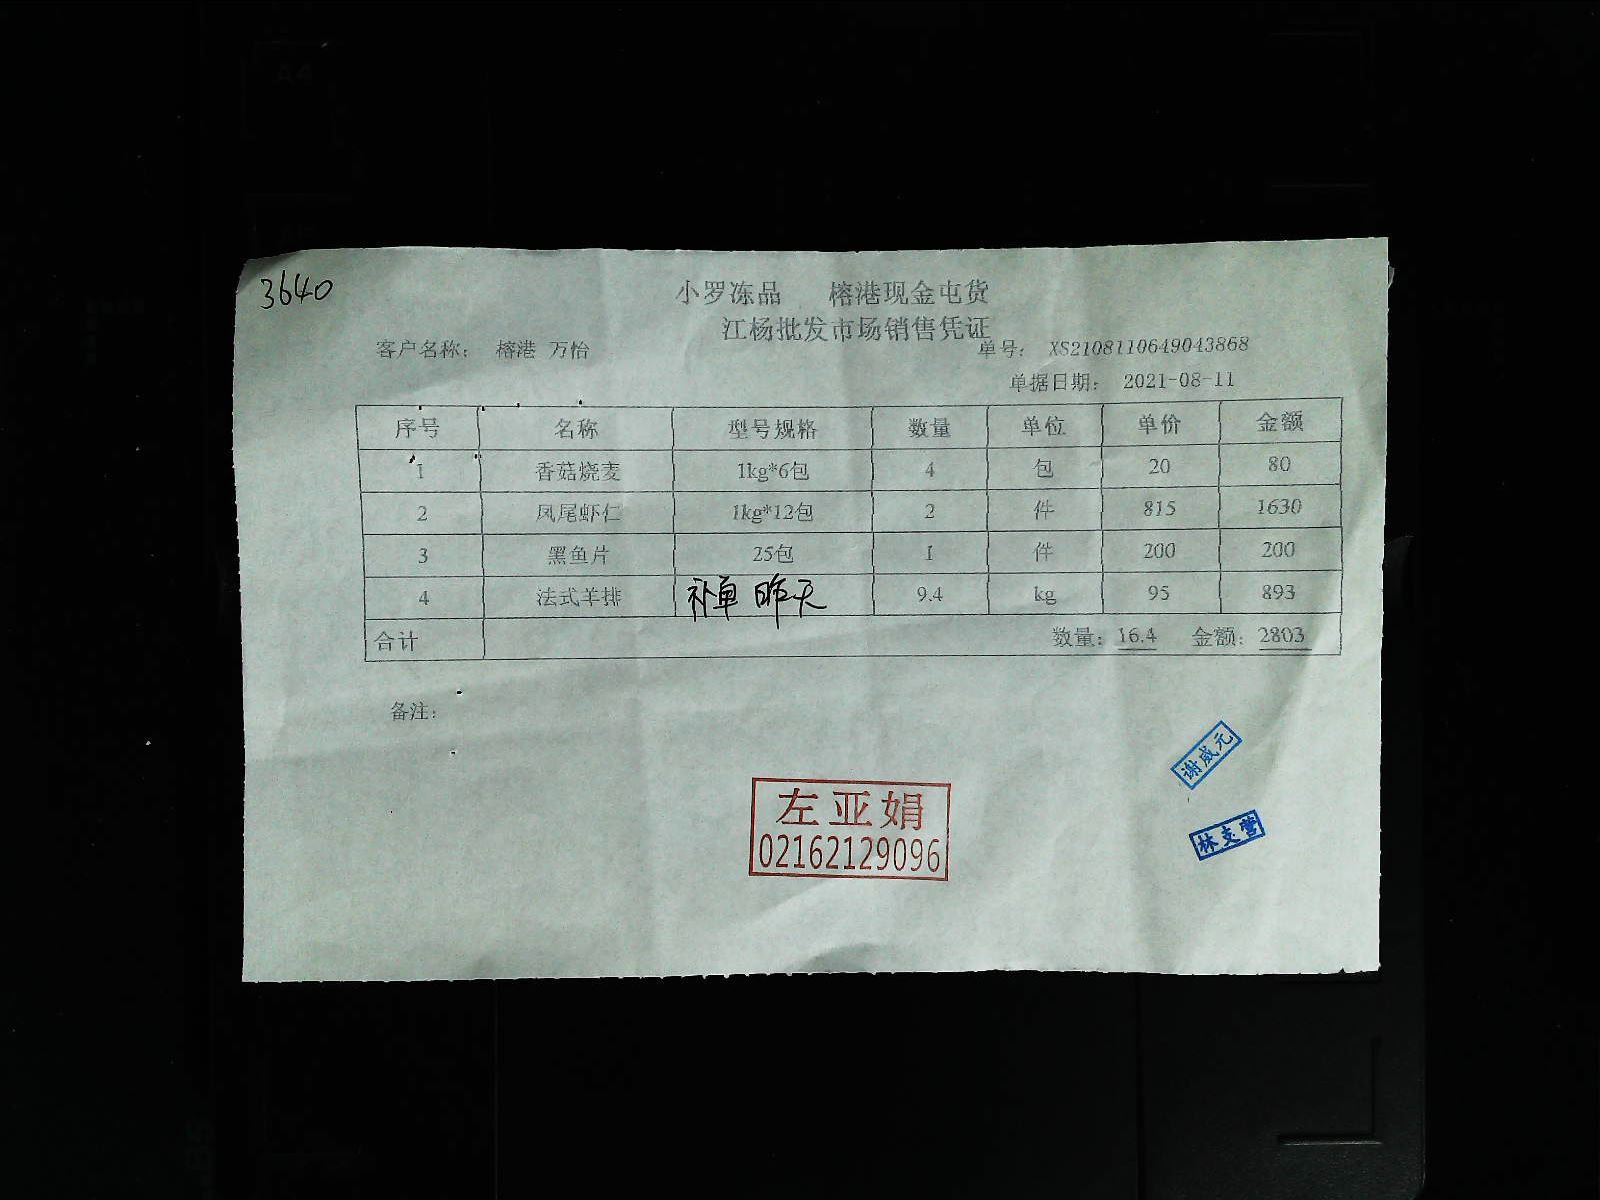 3640
小罗冻品 榕港现金屯货
江杨批发市场销售凭证
客户名称： 榕港 万怡 单号： XS2108110649043868
单据日期： 2021-08-11
序号 名称 型号规格 数量 单位 单价 金额
1 香菇烧麦 1kg*6包 4 包 20 80
2 凤尾虾仁 1kg*12包 2 件 815 1630
3 黑鱼片 25包 1 件 200 200
4 法式羊排 补单 昨天 9.4 kg 95 893
合计 数量：16.4 金额：2803
备注：
谢咸元
左亚娟
02162129096
林支营